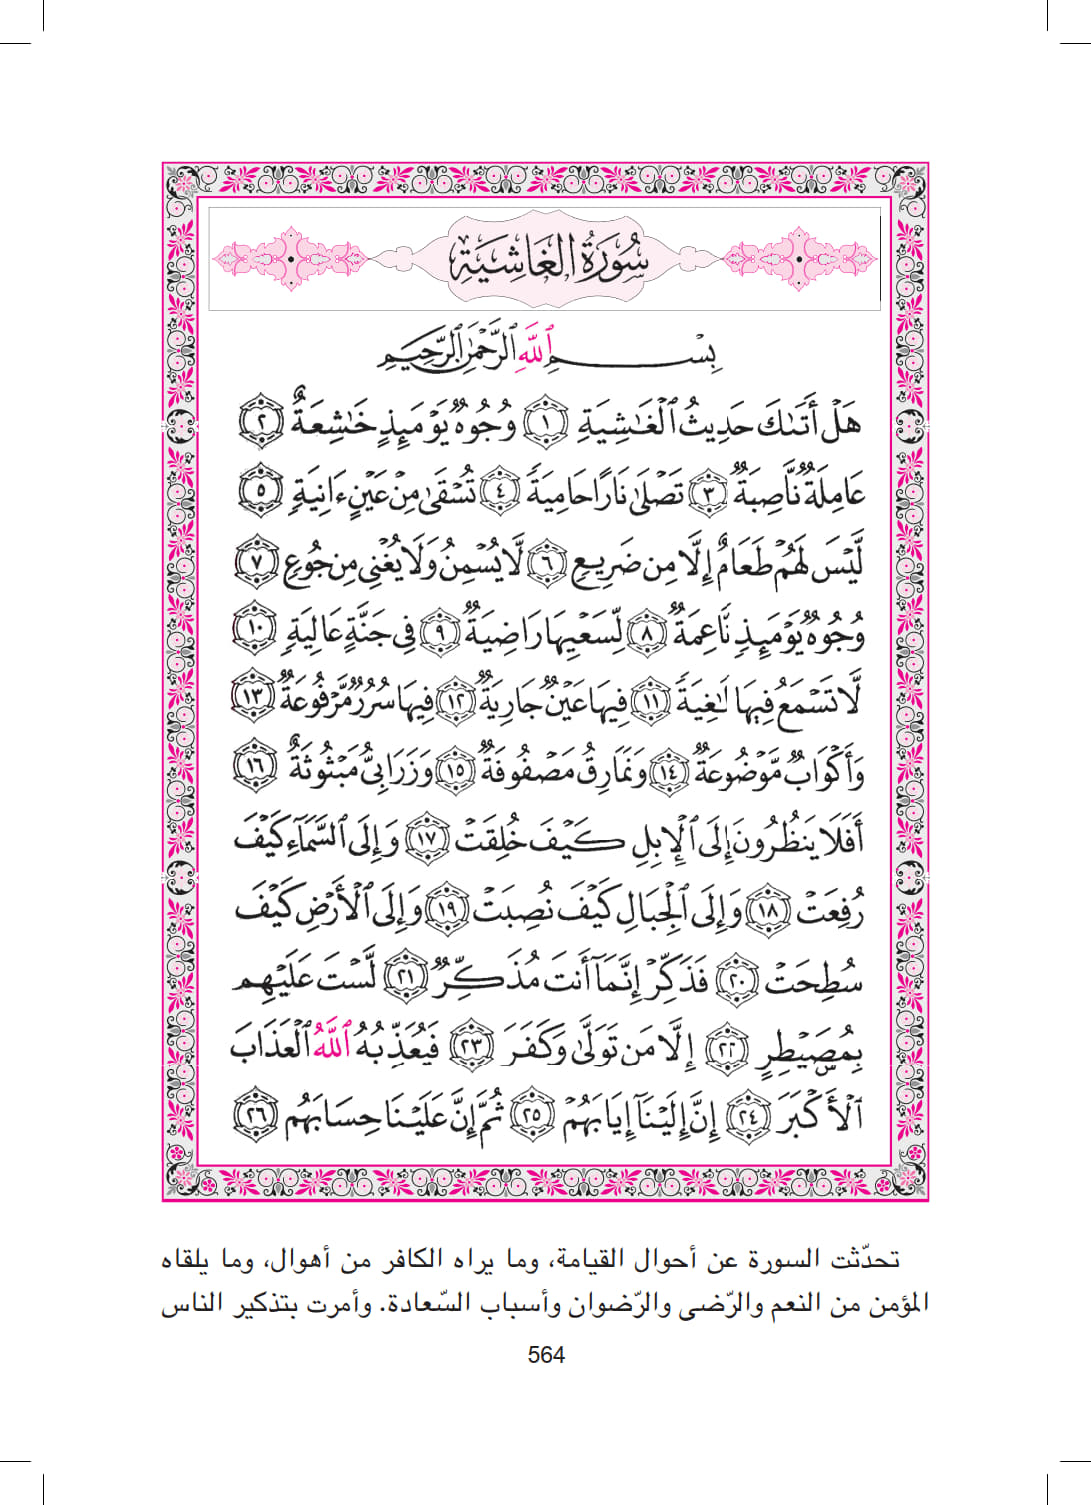 سُورَةُ الغَاشِيَةِ
بِسْمِ ٱللَّهِ ٱلرَّحْمَٰنِ ٱلرَّحِيمِ
هَلْ أَتَىٰكَ حَدِيثُ ٱلْغَٰشِيَةِ ١ وُجُوهٌ يَوْمَئِذٍ خَٰشِعَةٌ ٢
عَامِلَةٌ نَّاصِبَةٌ ٣ تَصْلَىٰ نَارًا حَامِيَةً ٤ تُسْقَىٰ مِنْ عَيْنٍ ءَانِيَةٍ ٥
لَّيْسَ لَهُمْ طَعَامٌ إِلَّا مِن ضَرِيعٍ ٦ لَّا يُسْمِنُ وَلَا يُغْنِى مِن جُوعٍ ٧
وُجُوهٌ يَوْمَئِذٍ نَّاعِمَةٌ ٨ لِّسَعْيِهَا رَاضِيَةٌ ٩ فِى جَنَّةٍ عَالِيَةٍ ١٠
لَّا تَسْمَعُ فِيهَا لَٰغِيَةً ١١ فِيهَا عَيْنٌ جَارِيَةٌ ١٢ فِيهَا سُرُرٌ مَّرْفُوعَةٌ ١٣
وَأَكْوَابٌ مَّوْضُوعَةٌ ١٤ وَنَمَارِقُ مَصْفُوفَةٌ ١٥ وَزَرَابِىُّ مَبْثُوثَةٌ ١٦
أَفَلَا يَنظُرُونَ إِلَى ٱلْإِبِلِ كَيْفَ خُلِقَتْ ١٧ وَإِلَى ٱلسَّمَآءِ كَيْفَ
رُفِعَتْ ١٨ وَإِلَى ٱلْجِبَالِ كَيْفَ نُصِبَتْ ١٩ وَإِلَى ٱلْأَرْضِ كَيْفَ
سُطِحَتْ ٢٠ فَذَكِّرْ إِنَّمَآ أَنتَ مُذَكِّرٌ ٢١ لَّسْتَ عَلَيْهِم
بِمُصَيْطِرٍ ٢٢ إِلَّا مَن تَوَلَّىٰ وَكَفَرَ ٢٣ فَيُعَذِّبُهُ ٱللَّهُ ٱلْعَذَابَ
ٱلْأَكْبَرَ ٢٤ إِنَّ إِلَيْنَآ إِيَابَهُمْ ٢٥ ثُمَّ إِنَّ عَلَيْنَا حِسَابَهُم ٢٦
تحدّثت السورة عن أحوال القيامة، وما يراه الكافر من أهوال، وما يلقاه
المؤمن من النعم والرّضى والرّضوان وأسباب السّعادة. وأمرت بتذكير الناس
564